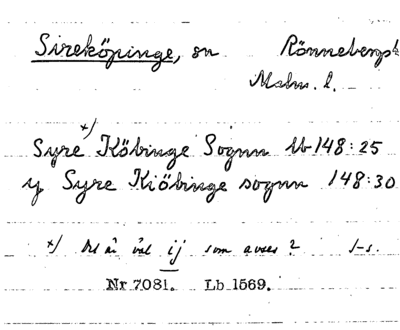 Sireköpinge, sn Rönnebergs h.
Malm. l.
Syre x) Köbinge Sognn lb 148:25
y Syre Kiöbinge sognn 148:30
x) Det är väl ij som avses? J-s.
Nr 7081. Lb 1569.